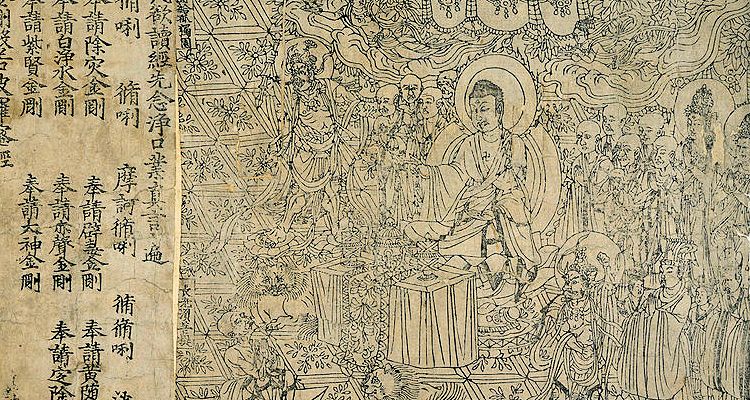 孤獨園
欲讀經先念淨口業真言一遍
脩唎 脩唎 摩訶脩唎 脩脩唎
奉請除災金剛 奉請辟毒金剛 奉請黃隨
奉請白淨水金剛 奉請赤聲金剛 奉請定除
奉請紫賢金剛 奉請大神金剛
剛般若波羅蜜經